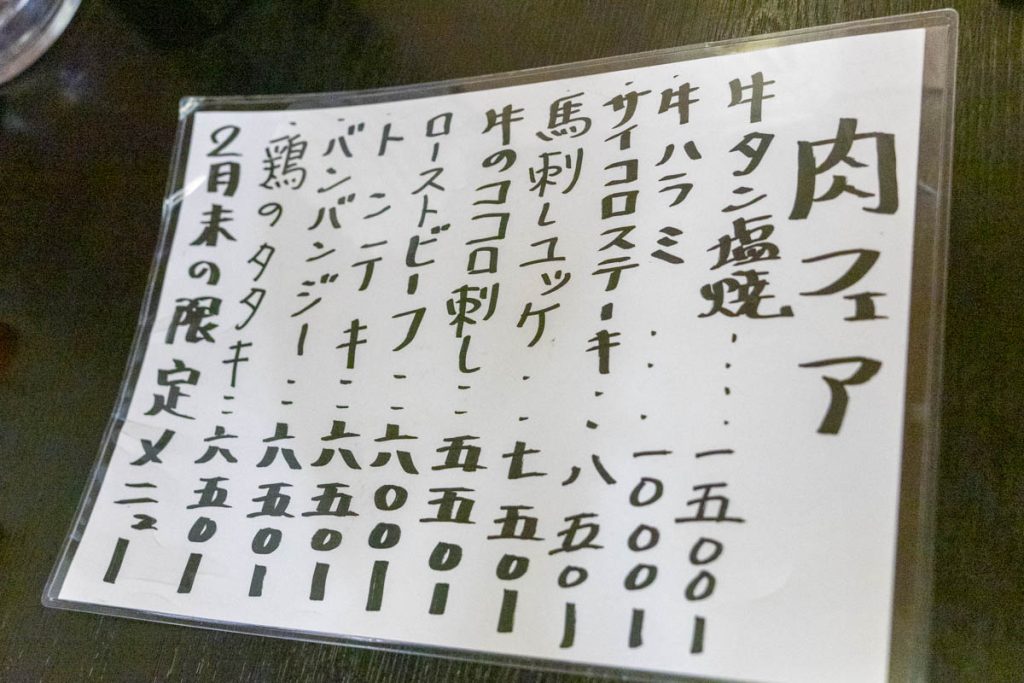 肉フェア
・牛タン塩焼・・・・一五〇〇ー
・牛ハラミ・・・・一〇〇〇ー
・サイコロステーキ・・八五〇ー
・馬刺しユッケ・・・七五〇ー
・牛のココロ刺し・・五五〇ー
・ローストビーフ・・六〇〇ー
・トンテキ・・六五〇ー
・バンバンジー・・六五〇ー
・鶏のタタキ・・六五〇ー
2月末の限定メニュー